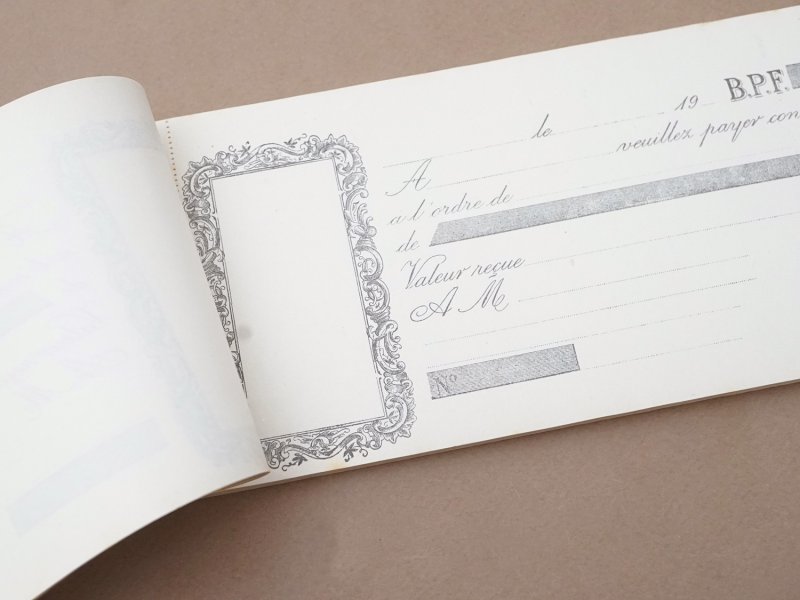 le 19 B.P.F.
A veuillez payer con
a l'ordre de
de
Valeur reçue
A M
No